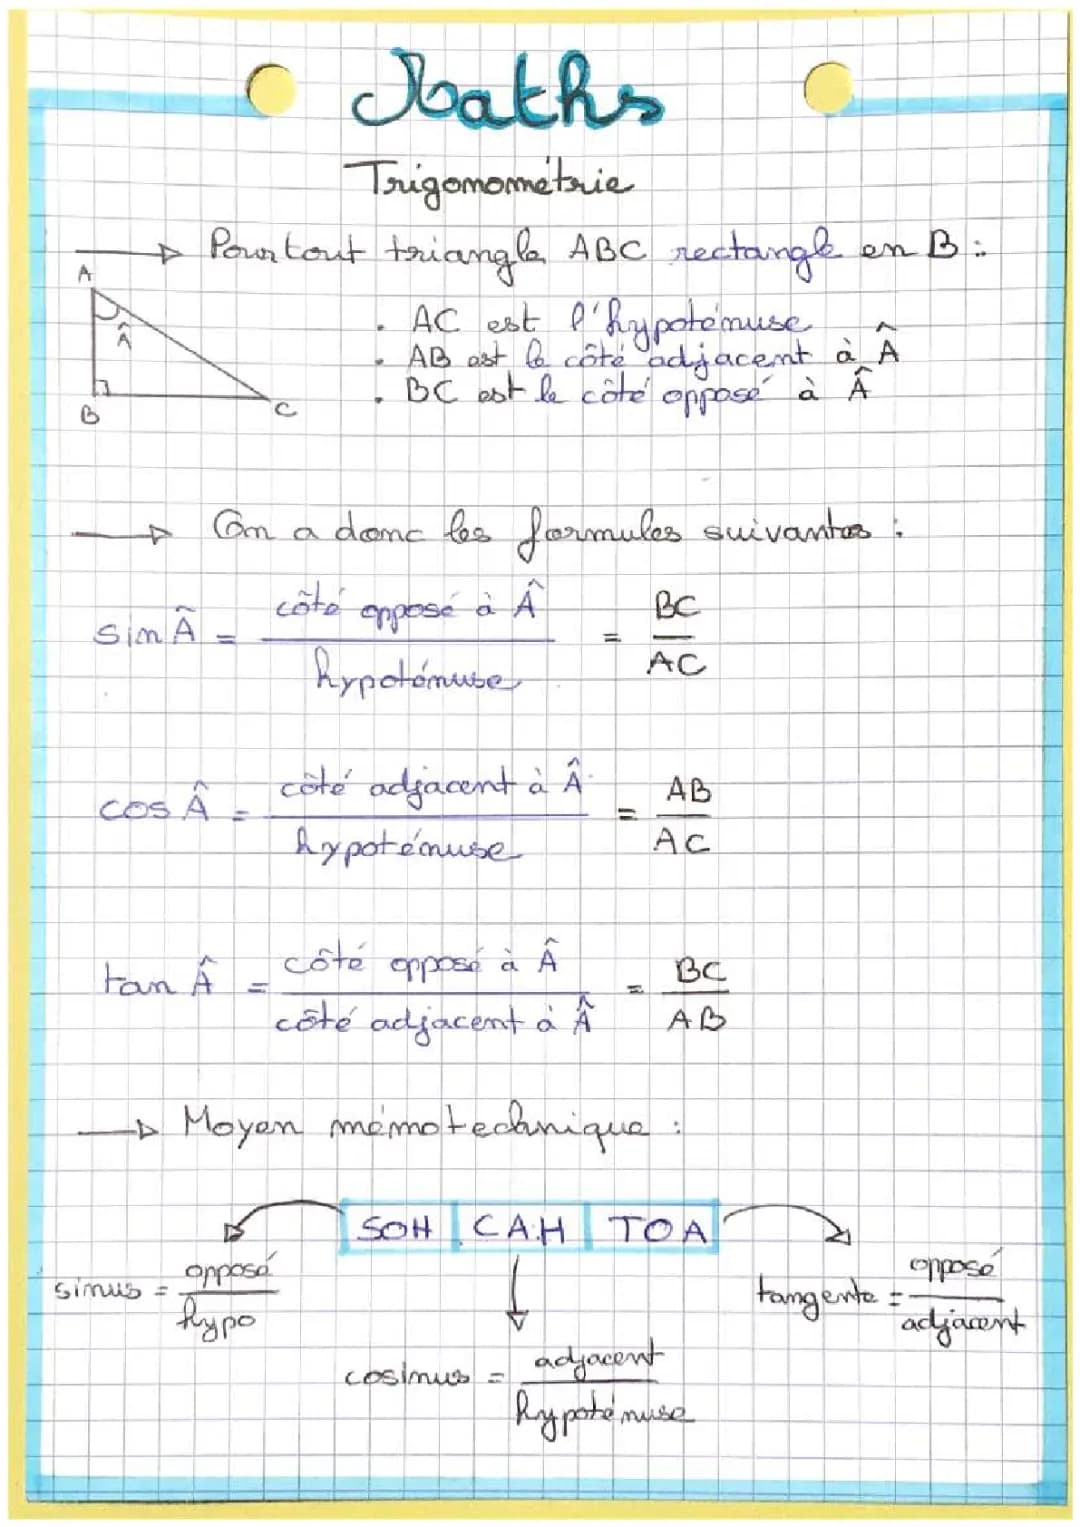 Maths
Trigonométrie
→ Pour tout triangle ABC rectangle en B :
A
Â
B
C
. AC est l'hypoténuse
. AB est le côté adjacent à Â
. BC est le côté opposé à Â
→ On a donc les formules suivantes :
sin Â = côté opposé à Â / hypoténuse = BC / AC
cos Â = côté adjacent à Â / hypoténuse = AB / AC
tan Â = côté opposé à Â / côté adjacent à Â = BC / AB
→ Moyen mémotechnique :
SOH CAH TOA
sinus = opposé / hypo
cosinus = adjacent / hypoténuse
tangente = opposé / adjacent